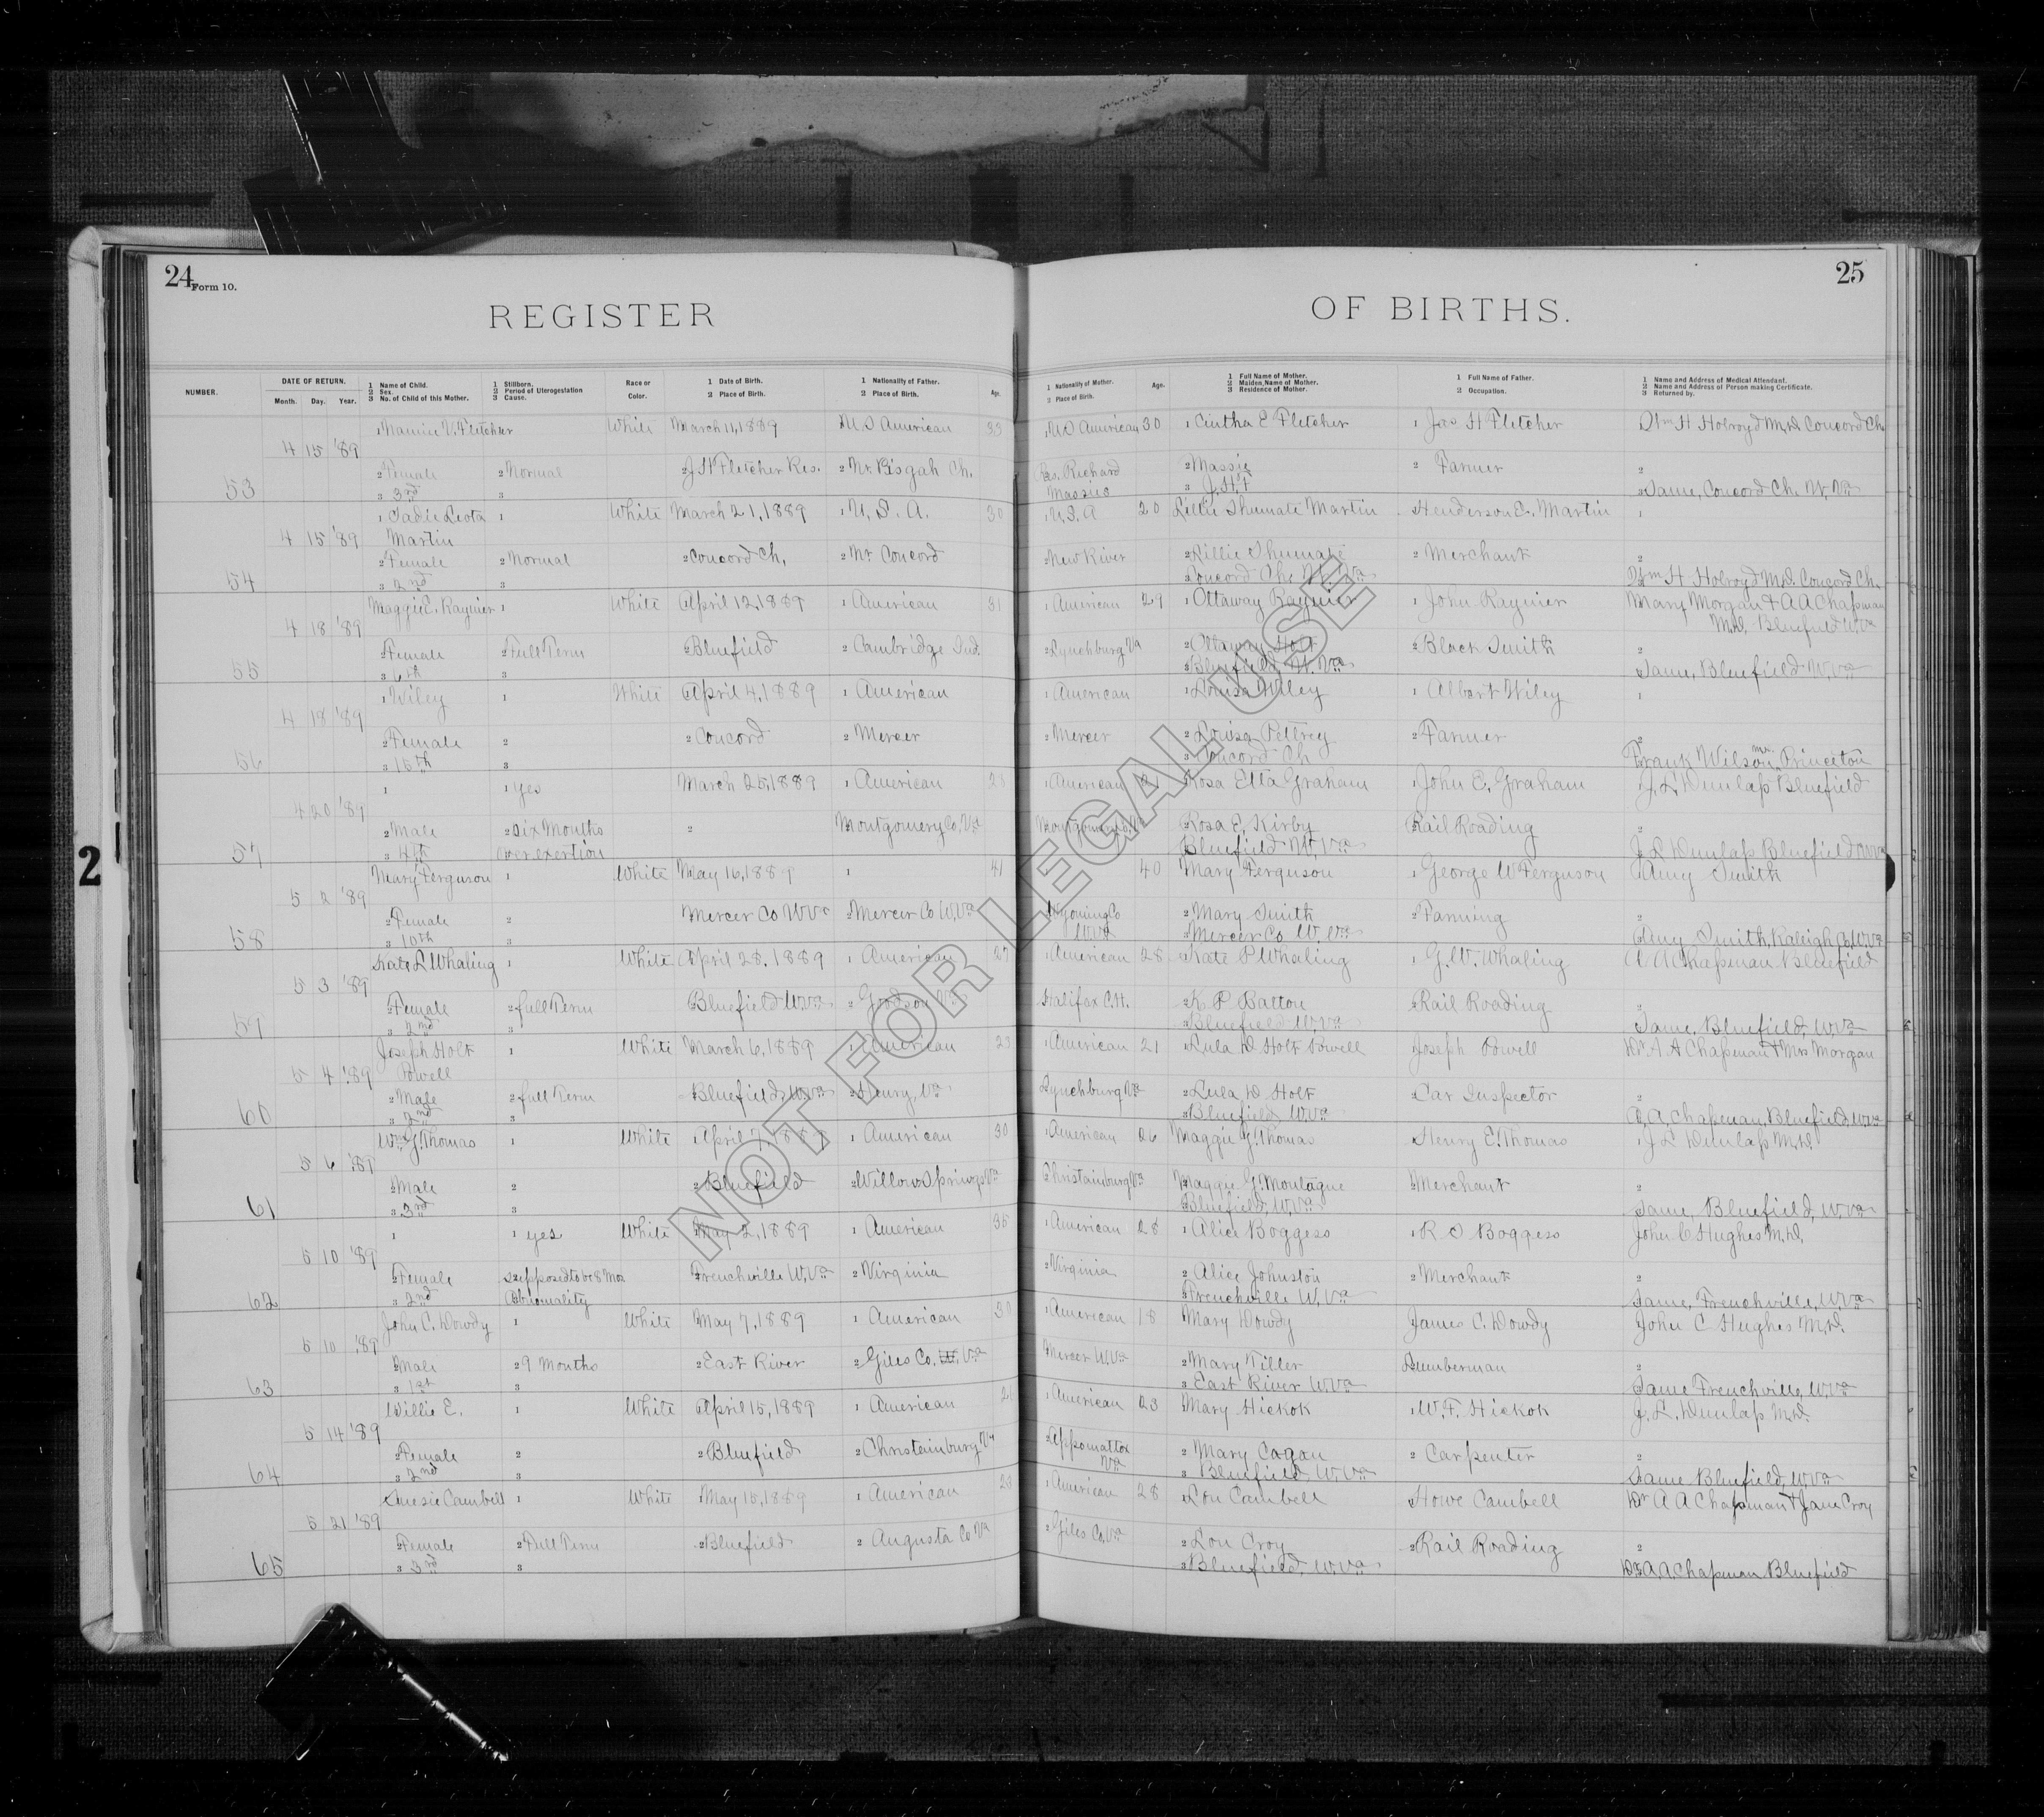 24 Form 10.
REGISTER
OF BIRTHS.
25
NUMBER.
DATE OF RETURN.
Month. Day. Year.
1 Name of Child.
2 Sex.
3 No. of Child of this Mother.
1 Stillborn.
2 Period of Uterogestation
3 Cause.
Race or
Color.
1 Date of Birth.
2 Place of Birth.
1 Nationality of Father.
2 Place of Birth.
Age.
1 Nationality of Mother.
2 Place of Birth.
Age.
1 Full Name of Mother.
2 Maiden Name of Mother.
3 Residence of Mother.
1 Full Name of Father.
2 Occupation.
1 Name and Address of Medical Attendant.
2 Name and Address of Person making Certificate.
3 Returned by.
1 V. Fletcher White March 11, 1889 1 U S American 33 1 U S American 30 1 Cintha E Fletcher 1 Jas H Fletcher Wm H Holroyd M.D. Concord Ch.
4 15 '89
2 Female 2 Normal 2 J H Fletcher Res. 2 Nr. Pisgah Ch. Res. Richard 2 Massie 2 Farmer 2
53 3 3rd 3 Massies 3 J.H.F 3 Same, Concord Ch. W. Va
1 Sadie Leota 1 White March 21, 1889 1 U. S. A. 30 1 U. S. A 20 Lillie Shumate Martin Henderson E. Martin 1
4 15 '89 Martin
2 Female 2 Normal 2 Concord Ch, 2 Nr Concord 2 New River 2 Lillie Shumate 2 Merchant 2
54 3 2nd 3 3 Concord Ch. W. Va Wm H Holroyd M.D. Concord Ch.
Maggie E. Raynier 1 White April 12, 1889 1 American 31 1 American 29 1 Ottaway Raynier 1 John Raynier Mary Morgan & A A Chapman
4 18 '89 M.D. Bluefield W. Va
2 Female 2 Full Term 2 Bluefield 2 Cambridge Ind. 2 Lynchburg Va 2 Ottaway Holt 2 Black Smith 2
55 3 6th 3 3 Bluefield W. Va 3 Same, Bluefield W. Va
1 Wiley 1 White April 4, 1889 1 American 1 American 1 Louisa Wiley 1 Albert Wiley 1
4 18 '89
2 Female 2 2 Concord 2 Mercer 2 Mercer 2 Louisa Pettrey 2 Farmer 2
56 3 15th 3 3 Concord Ch Frank Wilson Princeton
1 1 yes March 25, 1889 1 American 23 1 American 21 Rosa Etta Graham 1 John E. Graham 1 J. L. Dunlap Bluefield
4 20 '89
2 Male 2 Six Months 2 Montgomery Co, Va Montgomery Co, Va Rosa E. Kirby Rail Roading 2
57 3 4th over exertion Bluefield W. Va J L Dunlap Bluefield W Va
Mary Ferguson 1 White May 16, 1889 1 41 40 Mary Ferguson 1 George W Ferguson Amy Smith
5 2 '89
2 Female 2 Mercer Co W Va 2 Mercer Co W. Va Wyoming Co 2 Mary Smith 2 Farming 2
58 3 10th 3 W. Va 3 Mercer Co W. Va Amy Smith, Raleigh Co, W. Va
Kate L Whaling 1 White April 28, 1889 1 American 27 1 American 28 1 Kate P Whaling 1 G. W. Whaling A A Chapman Bluefield
5 3 '89
2 Female 2 full Term Bluefield W. Va 2 Goodson Va Halifax C.H. 2 K P Batton 2 Rail Roading 2
59 3 2nd 3 3 Bluefield W. Va Same, Bluefield, W. Va
Joseph Holt 1 White March 6, 1889 1 American 23 1 American 21 1 Lula D Holt Powell Joseph Powell Dr A A Chapman & Mrs Morgan
5 4 '89 Powell
2 Male 2 full Term Bluefield W. Va 2 Henry, Va Lynchburg Va 2 Lula D Holt 2 Car Inspector 2
60 3 2nd 3 3 Bluefield W. Va A, A, Chapman, Bluefield, W Va
Wm J. Thomas 1 White 1 April 7, 1889 1 American 30 1 American 26 Maggie G. Thomas Henry E. Thomas 1 J L Dunlap M.D.
5 6 '89
2 Male 2 2 Bluefield 2 Willow Springs Va Christainburg Va Maggie G. Montague 2 Merchant 2
61 3 3rd 3 Bluefield, W. Va Same Bluefield, W. Va
1 1 yes White May 2, 1889 1 American 35 1 American 28 1 Alice Boggess 1 R S Boggess John C Hughes M.D.
5 10 '89
2 Female 2 supposed to be 8 Mos 2 Frenchville W. Va 2 Virginia 2 Virginia 2 Alice Johnston 2 Merchant 2
62 3 2nd Abnomality Frenchville W. Va Same, Frenchville, W. Va
John C. Dowdy 1 White May 7, 1889 1 American 30 1 American 18 Mary Dowdy James C. Dowdy John C Hughes M.D.
5 10 '89
Male 2 9 Months 2 East River 2 Giles Co. Va Mercer W. Va 2 Mary Tiller Lumberman 2
63 3 1st 3 3 East River W. Va Same Frenchville W. Va
Willie E. 1 White April 15, 1889 1 American 1 American 23 Mary Hickok 1 W. F. Hickok J. L. Dunlap M.D.
5 14 '89
2 Female 2 2 Bluefield 2 Christainburg Va 2 Appomattox Va 2 Mary Cagan 2 Carpenter 2
64 3 2nd 3 3 Bluefield, W. Va Same Bluefield, W. Va
Cambell 1 White May 15, 1889 1 American 23 1 American 28 1 Lou Cambell Howe Cambell Dr A A Chapman & Jane Croy
5 21 '89
2 Female 2 Full Term 2 Bluefield 2 Augusta Co Va 2 Giles Co, Va 2 Lou Croy 2 Rail Roading 2
65 3 3rd 3 3 Bluefield, W. Va Dr A. A. Chapman Bluefield
2
NOT FOR LEGAL USE